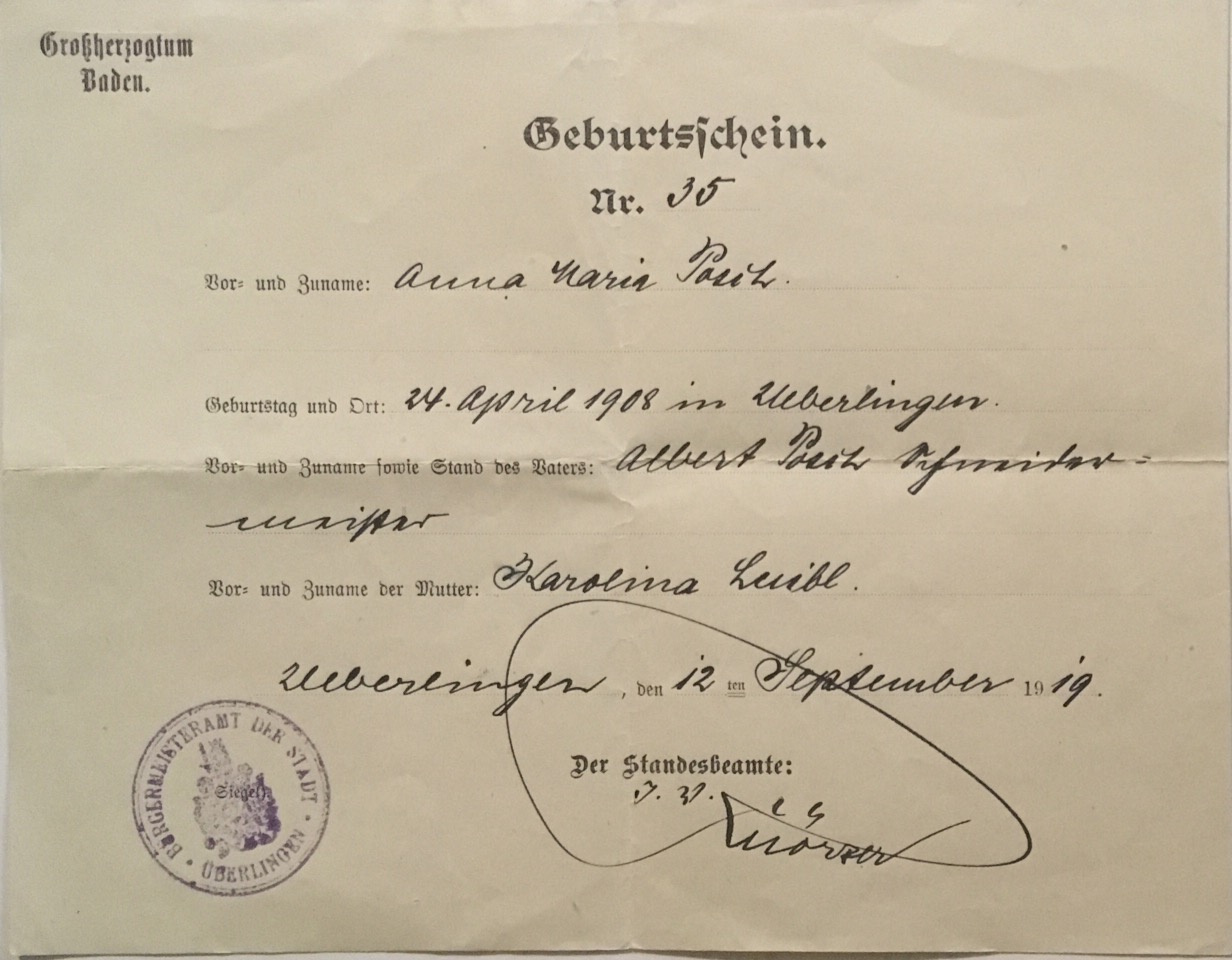 Großherzogtum
Baden.
Geburtsschein.
Nr. 35
Vor= und Zuname: Anna Maria Posch.
Geburtstag und Ort: 24. April 1908 in Ueberlingen.
Vor= und Zuname sowie Stand des Vaters: Albert Posch Schneider=
meister
Vor= und Zuname der Mutter: Karolina Leibl.
Ueberlingen, den 12 ten September 1919.
Der Standesbeamte:
J. V.
BÜRGERMEISTERAMT DER STADT
(Siegel).
ÜBERLINGEN